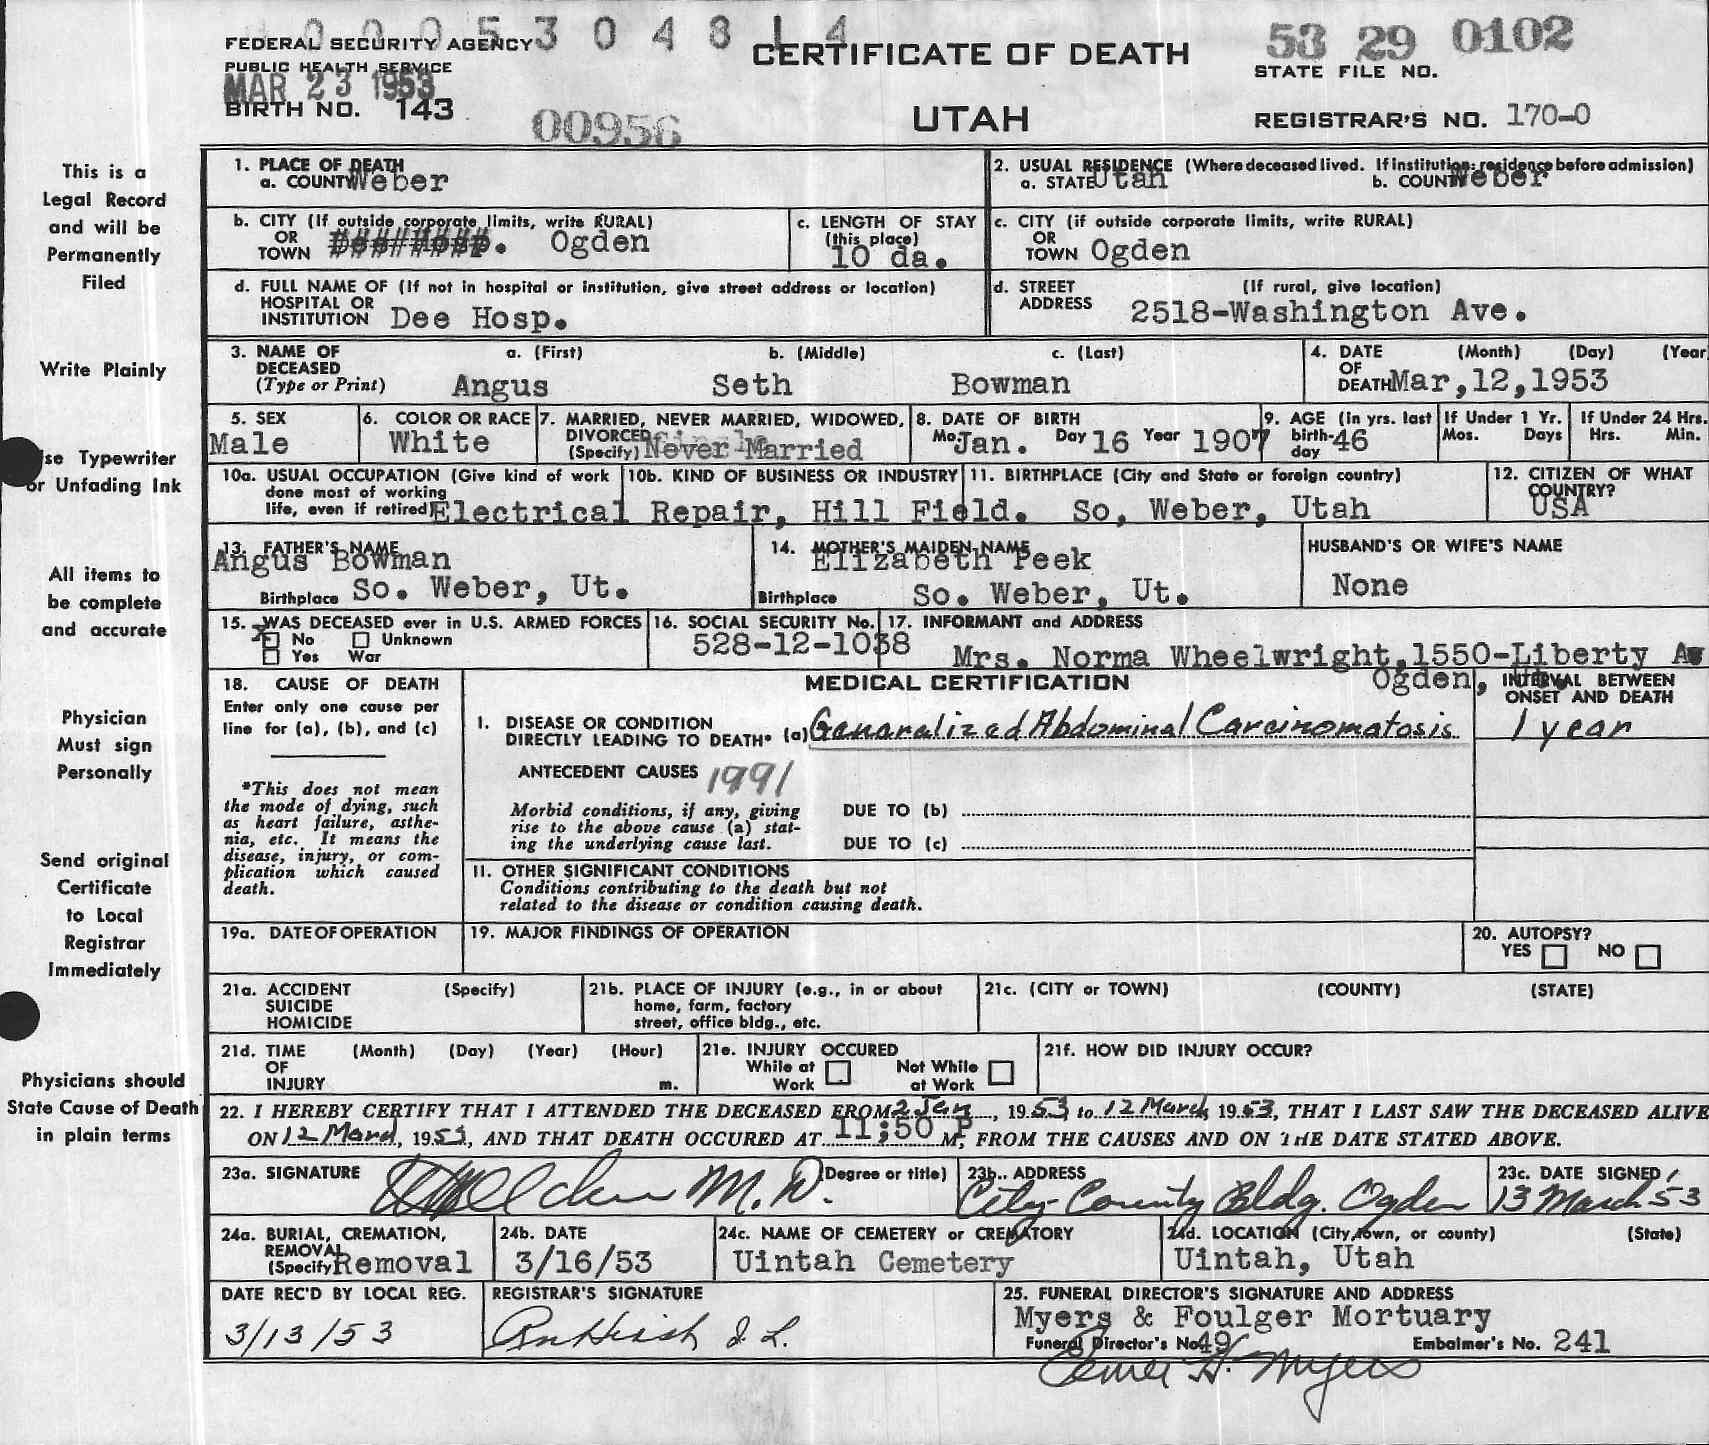 0 0 0 5 3 0 4 8 1 4
FEDERAL SECURITY AGENCY
PUBLIC HEALTH SERVICE
MAR 23 1953
BIRTH NO. 143
00956
CERTIFICATE OF DEATH
UTAH
53 29 0102
STATE FILE NO.
REGISTRAR'S NO. 170-0
This is a
Legal Record
and will be
Permanently
Filed
Write Plainly
se Typewriter
or Unfading Ink
All items to
be complete
and accurate
Physician
Must sign
Personally
Send original
Certificate
to Local
Registrar
Immediately
Physicians should
State Cause of Death
in plain terms
1. PLACE OF DEATH
a. COUNTY Weber
2. USUAL RESIDENCE (Where deceased lived. If institution: residence before admission)
a. STATE Utah b. COUNTY Weber
b. CITY (If outside corporate limits, write RURAL)
OR
TOWN Ogden
c. LENGTH OF STAY
(this place)
10 da.
c. CITY (if outside corporate limits, write RURAL)
OR
TOWN Ogden
d. FULL NAME OF (If not in hospital or institution, give street address or location)
HOSPITAL OR
INSTITUTION Dee Hosp.
d. STREET (If rural, give location)
ADDRESS 2518-Washington Ave.
3. NAME OF a. (First) b. (Middle) c. (Last)
DECEASED
(Type or Print) Angus Seth Bowman
4. DATE (Month) (Day) (Year
OF
DEATH Mar,12,1953
5. SEX
Male
6. COLOR OR RACE
White
7. MARRIED, NEVER MARRIED, WIDOWED,
DIVORCED
(Specify) Never Married
8. DATE OF BIRTH
Mo. Jan. Day 16 Year 1907
9. AGE (in yrs. last
birth-
day 46
If Under 1 Yr.
Mos. Days
If Under 24 Hrs.
Hrs. Min.
10a. USUAL OCCUPATION (Give kind of work
done most of working
life, even if retired) Electrical Repair, Hill Field.
10b. KIND OF BUSINESS OR INDUSTRY
11. BIRTHPLACE (City and State or foreign country)
So, Weber, Utah
12. CITIZEN OF WHAT
COUNTRY?
USA
13. FATHER'S NAME
Angus Bowman
Birthplace So. Weber, Ut.
14. MOTHER'S MAIDEN NAME
Elizabeth Peek
Birthplace So. Weber, Ut.
HUSBAND'S OR WIFE'S NAME
None
15. WAS DECEASED ever in U.S. ARMED FORCES
x No Unknown
Yes War
16. SOCIAL SECURITY No.
528-12-1038
17. INFORMANT and ADDRESS
Mrs. Norma Wheelwright,1550-Liberty Av
Ogden, Ut.
18. CAUSE OF DEATH
Enter only one cause per
line for (a), (b), and (c)
*This does not mean
the mode of dying, such
as heart failure, asthe-
nia, etc. It means the
disease, injury, or com-
plication which caused
death.
MEDICAL CERTIFICATION
INTERVAL BETWEEN
ONSET AND DEATH
I. DISEASE OR CONDITION
DIRECTLY LEADING TO DEATH* (a) Genaralized Abdominal Carcinomatosis 1 year
ANTECEDENT CAUSES 1991
Morbid conditions, if any, giving
rise to the above cause (a) stat-
ing the underlying cause last.
DUE TO (b)
DUE TO (c)
II. OTHER SIGNIFICANT CONDITIONS
Conditions contributing to the death but not
related to the disease or condition causing death.
19a. DATE OF OPERATION
19. MAJOR FINDINGS OF OPERATION
20. AUTOPSY?
YES NO
21a. ACCIDENT (Specify)
SUICIDE
HOMICIDE
21b. PLACE OF INJURY (e.g., in or about
home, farm, factory
street, office bldg., etc.
21c. (CITY or TOWN) (COUNTY) (STATE)
21d. TIME (Month) (Day) (Year) (Hour)
OF
INJURY m.
21e. INJURY OCCURED
While at Not While
Work at Work
21f. HOW DID INJURY OCCUR?
22. I HEREBY CERTIFY THAT I ATTENDED THE DECEASED FROM 2 Jan, 1953 to 12 March 1953, THAT I LAST SAW THE DECEASED ALIVE
ON 12 March, 1953, AND THAT DEATH OCCURED AT 11;50 P M, FROM THE CAUSES AND ON THE DATE STATED ABOVE.
23a. SIGNATURE M.D. (Degree or title)
23b.. ADDRESS
City-County Bldg. Ogden
23c. DATE SIGNED
13 March 53
24a. BURIAL, CREMATION,
REMOVAL
(Specify Removal
24b. DATE
3/16/53
24c. NAME OF CEMETERY or CREMATORY
Uintah Cemetery
24d. LOCATION (City, town, or county) (State)
Uintah, Utah
DATE REC'D BY LOCAL REG.
3/13/53
REGISTRAR'S SIGNATURE
25. FUNERAL DIRECTOR'S SIGNATURE AND ADDRESS
Myers & Foulger Mortuary
Funeral Director's No 49 Embalmer's No. 241
Myers